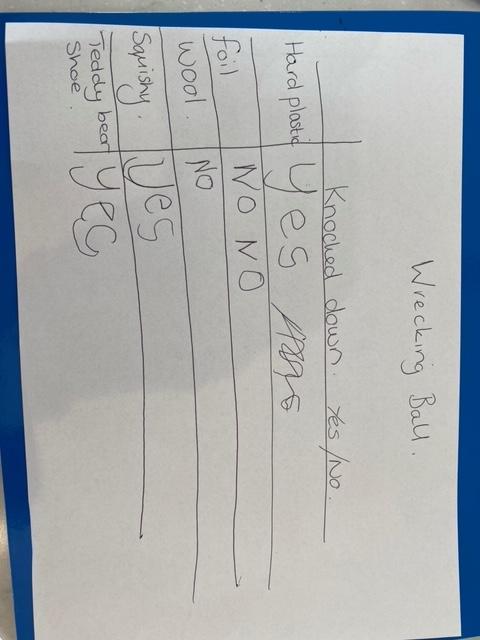 Wrecking Ball.
Knocked down. Yes/No.
Hard plastic yes
foil NO NO
wool. NO
Squishy. yes
Teddy bear yes
Shoe.